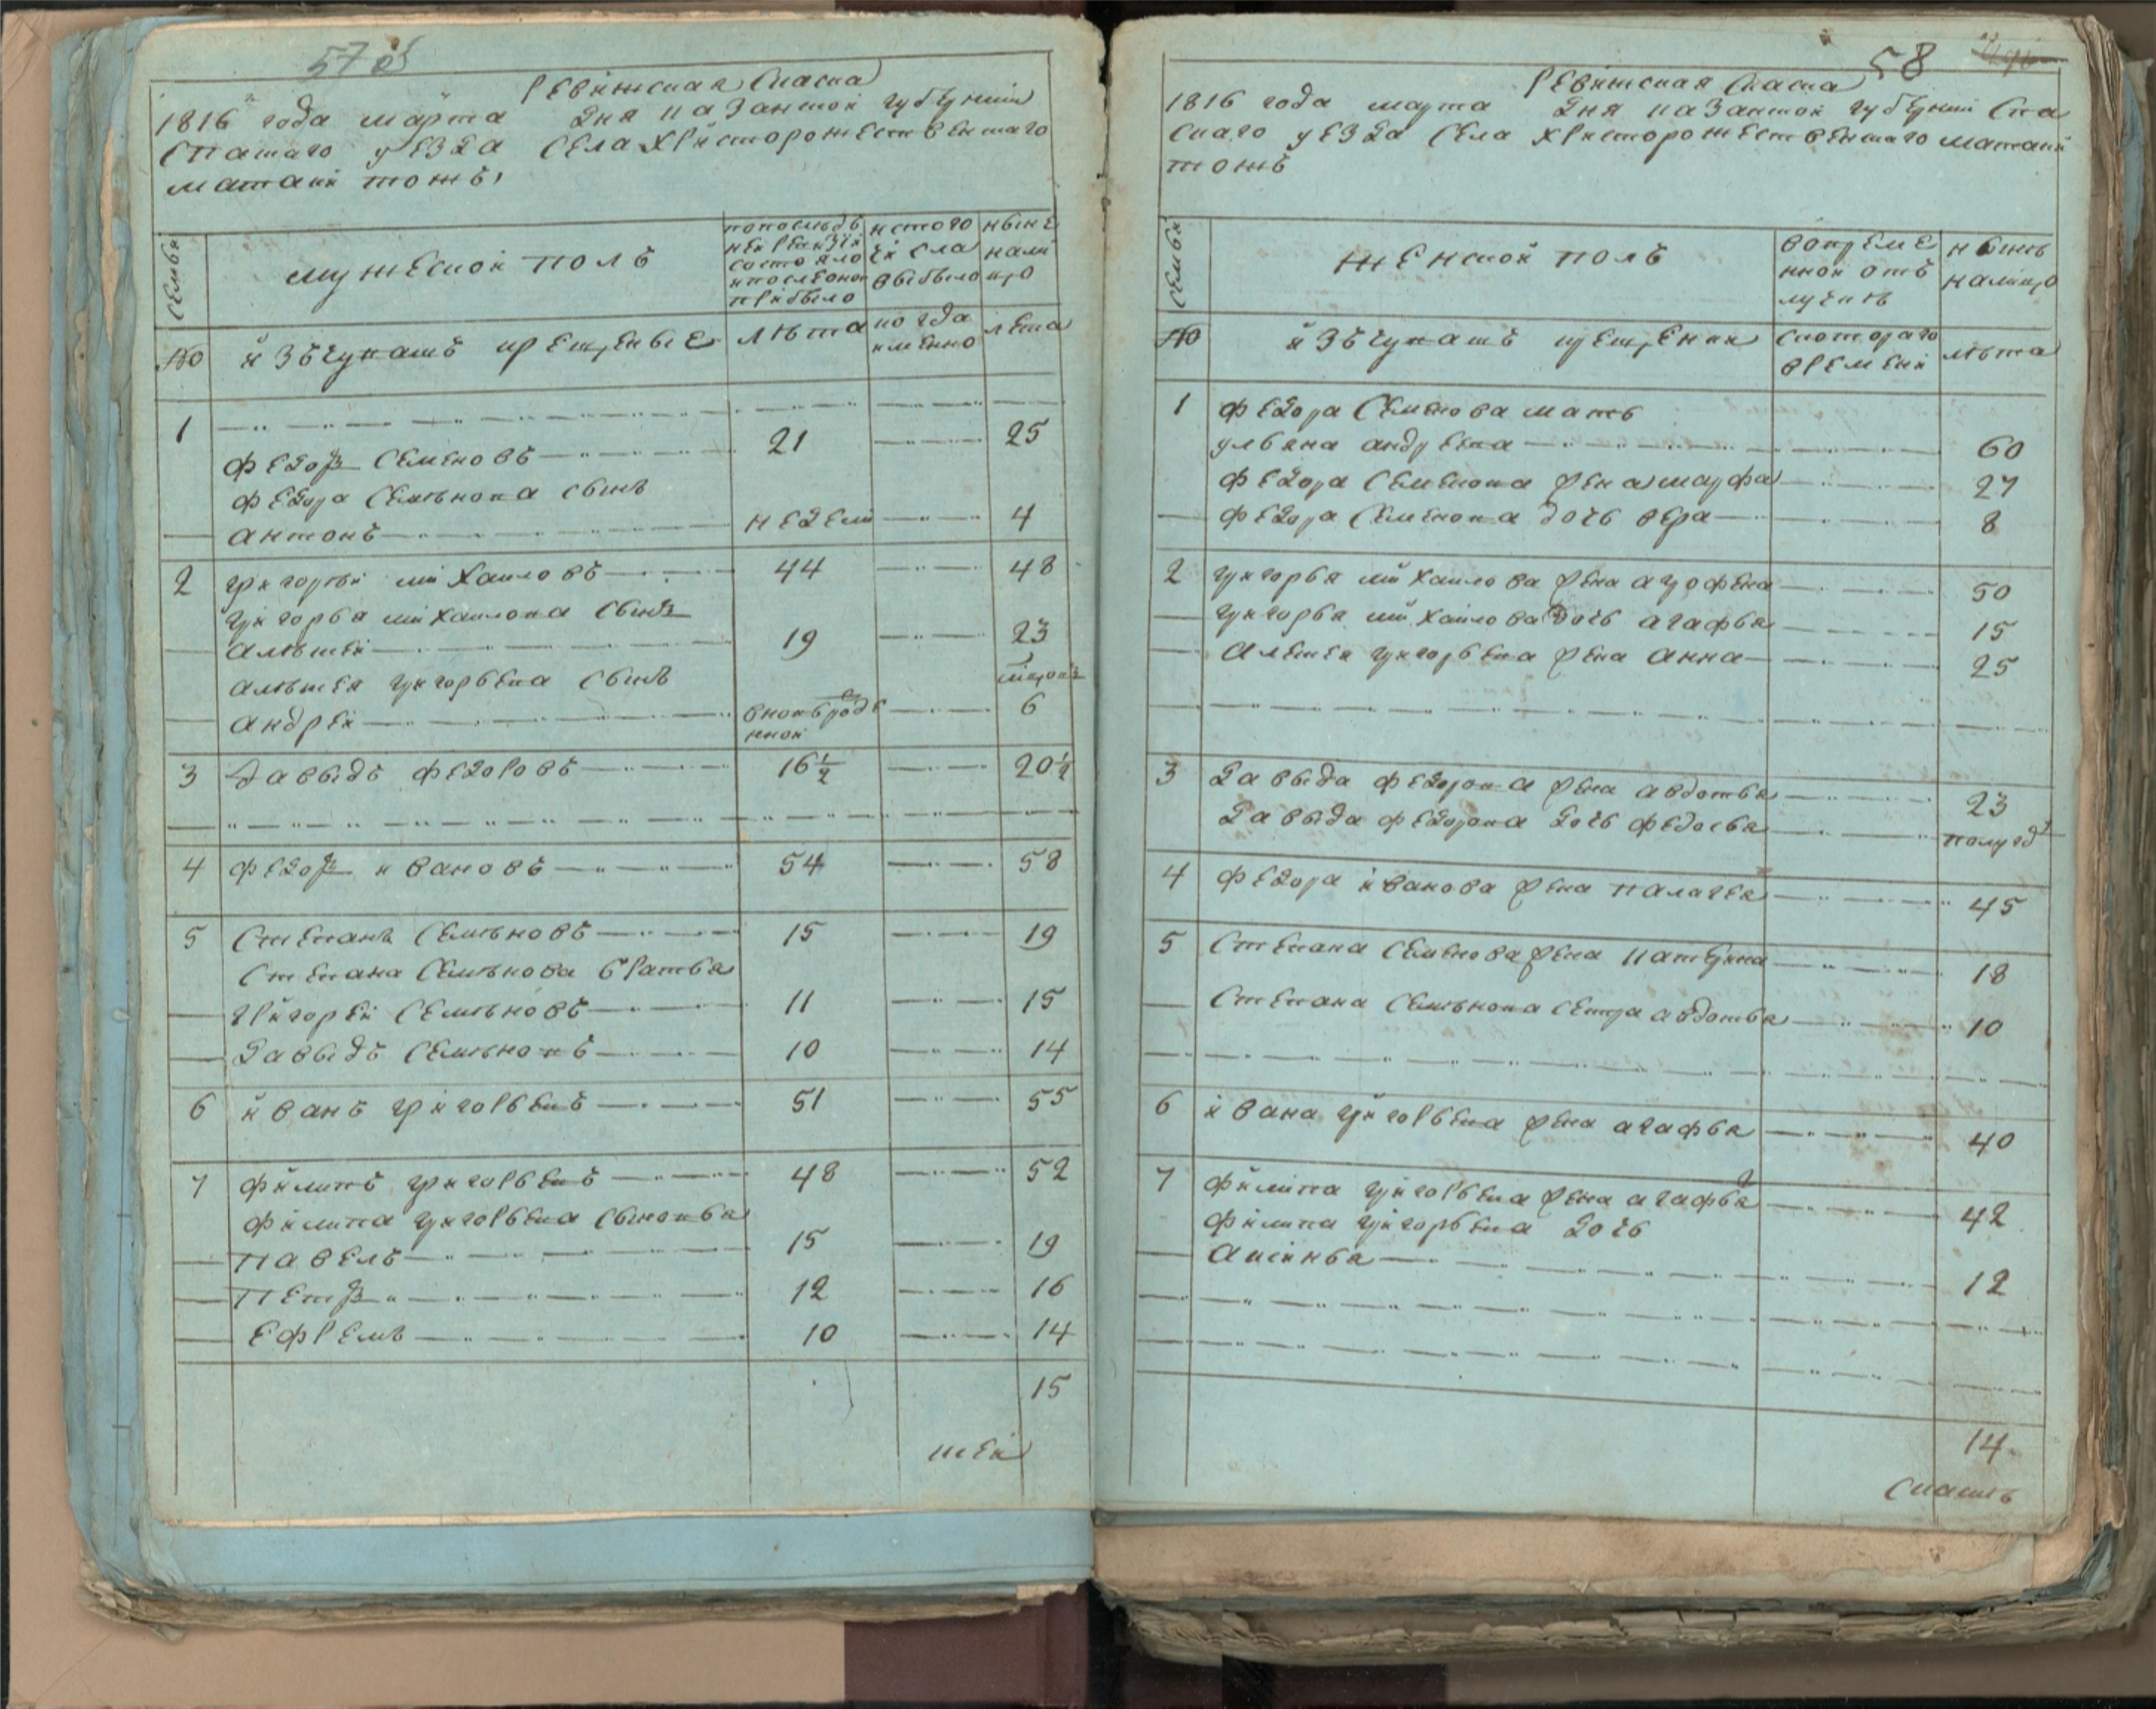 57 об
Ревижская Скаска
1816 года марта дня казанской губернии
Спаскаго уезда Села Христорожественскаго
матаки тожъ,
Семьи
мужеской полъ
попоследъ ней ревизіи состояло и после оной прибыло
ис того числа выбыло
ныне налицо
№
изъ чувашъ крещеные
лѣта
когда именно
лета
1
федоръ Семеновъ 21 25
федора Семѣнова сынъ
антонъ недели 4
2 григорей михайловъ 44 48
григорья михайлова сынъ
алѣксей 19 23
алѣксея григорьева сынъ
андрей вновь рожденной 6
3 давыдъ федоровъ 16 1/2 20 1/2
4 федоръ ивановъ 54 58
5 Степанъ Семѣновъ 15 19
Степана Семѣнова братья
григорей Семѣновъ 11 15
давыдъ Семѣновъ 10 14
6 иванъ григорьевъ 51 55
7 филипъ григорьевъ 48 52
филипа григорьева сыновья
павелъ 15 19
петръ 12 16
ефремъ 10 14
15
58
Ревижская Скаска
1816 года марта дня казанской губернии Спа
скаго уезда Села христорожественскаго матаки
тожъ
Семьи
женской полъ
вовременной отлучке
нынѣ налицо
№
изъ чувашъ крещении
скотораго времени
лѣта
1 федора Семенова мать
ульяна андреева 60
федора Семенова жена марфа 27
федора Семенова дочь вера 8
2 григорья михайлова жена агрофена 50
григорья михайлова дочь агафья 15
Алексея григорьева жена анна 25
3 давыда федорова жена авдотья 23
давыда федорова дочь федосья полугод
4 федора иванова жена палагея 45
5 Степана Семенова жена катерина 18
Степана Семѣнова сестра авдотья 10
6 ивана григорьева жена агафья 40
7 филипа григорьева жена агафья 42
филипа григорьева дочь
Аксинья 12
14